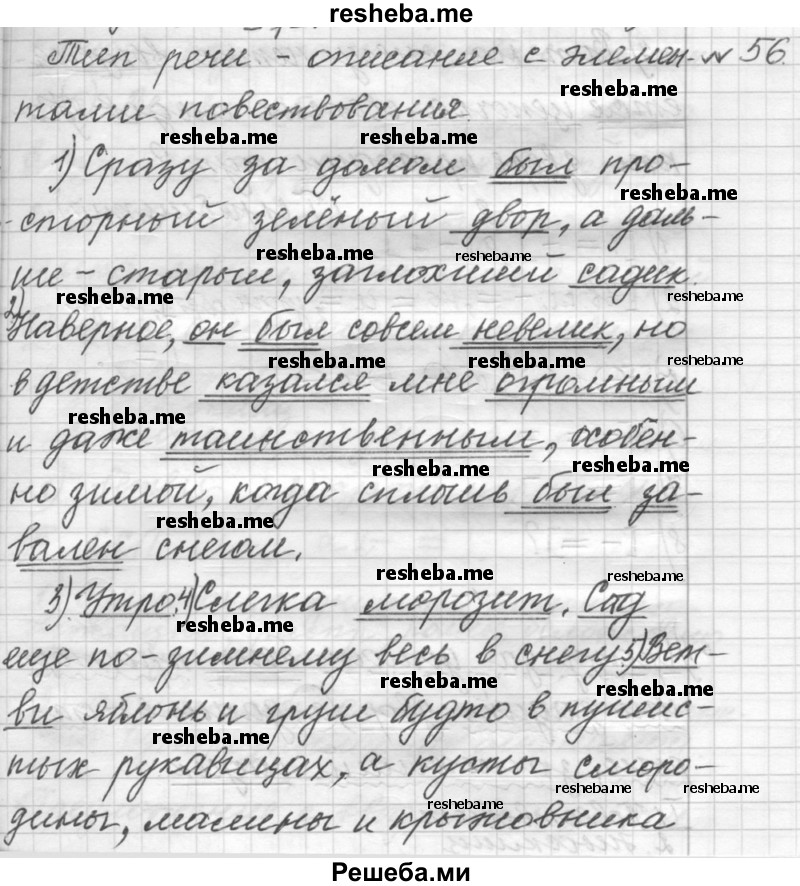 resheba.me
Тип речи - описание с элемен- № 56.
resheba.me
тами повествования.
resheba.me resheba.me
1) Сразу за домом был про-
resheba.me
сторный зелёный двор, а даль-
resheba.me resheba.me
ше - старый, заглохший садик.
resheba.me resheba.me
2) Наверное, он был совсем невелик, но
resheba.me resheba.me resheba.me
в детстве казался мне огромным
resheba.me
и даже таинственным, особен-
resheba.me resheba.me
но зимой, когда сплошь был за-
resheba.me
вален снегом.
resheba.me resheba.me
3) Утро. 4) Слегка морозит. Сад
resheba.me
еще по-зимнему весь в снегу 5) Вет-
resheba.me resheba.me
ви яблонь и груш будто в пушис-
resheba.me
тых рукавицах, а кусты сморо-
resheba.me resheba.me resheba.me
дины, малины и крыжовника
Решеба.ми